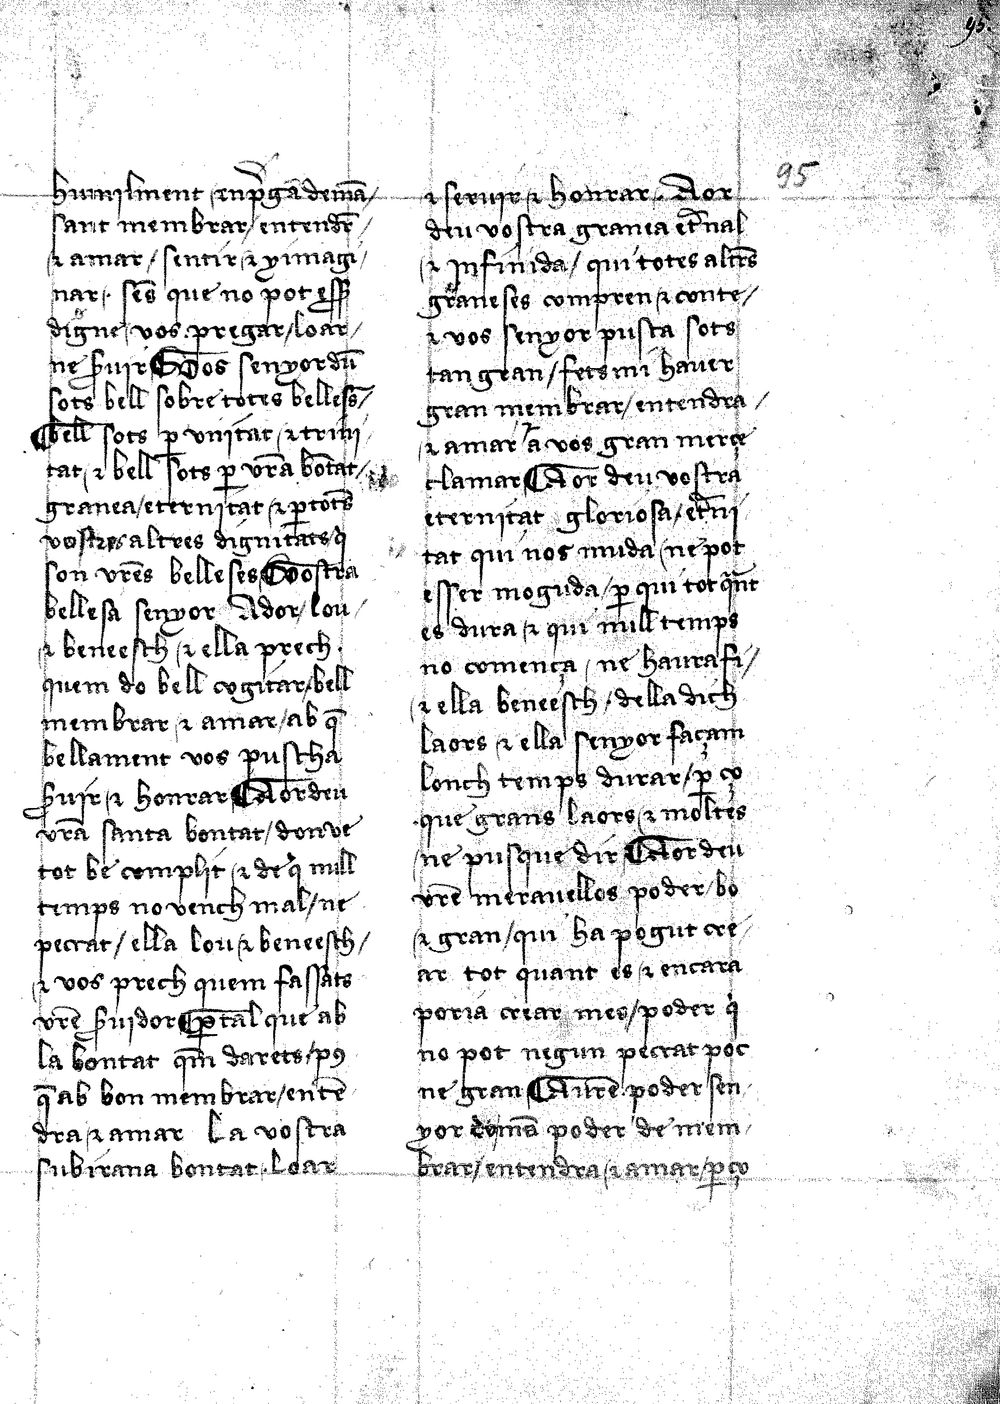 95
95
humilment / e npga demā/
sant membrar / entendr̄ /
⁊ amar / sentir ⁊ ymagi/
nar · sēs que no pot
digne vos pregar / loar /
ne ẜuir Vos senyor dū
sots bell sobre totes bellesēs /
bell sots ꝑ vnitat ⁊ trini
tat ⁊ bell sots ꝑ vr̄a bōtat /
granea / eternitat ⁊ ꝑ totēs
vostres altres dignitats / q̄
son vr̄es belleses Vostra
bellesa senyor Ador / lou /
⁊ beneesch ⁊ ella prech ·
quem do bell cogitar / bell
membrar ⁊ amar / ab q̄
bellament vos puscha
ẜuir ⁊ honrar Aor deu
vr̄a santa bontat / don ve
tot be complit ⁊ de q̄ null
temps no vench mal / ne
peccat / ella lou ⁊ beneesch /
⁊ vos prech quem fassats
vr̄e ẜuidor ꝑ tal que ab
la bontat qm̄ darets / pꝯ
q̄ ab bon membrar / entē
dra ⁊ amar La vostra
subirana bontat · Loar
⁊ seruir ⁊ honrar · Aor
deu vostra granea et̄nal
⁊ Infinida / qui totes altr̄s
graneses compren ⁊ conte /
⁊ vos senyor pusca sots
tan gran / fets mi hauer
gran membrar / entendra /
⁊ amar a vos gran merçe
clamar Aor deu vostra
eternitat gloriosa / et̄ni
tat qui nos muda ne pot
esser moguda / ꝑ qui tot qn̄t
es dura ⁊ qui null temps
no comença / ne haura fi /
⁊ ella beneesch / della dich
laors ⁊ ella senyor façam
lonch temps durar / ꝑ ço
que grans laors ⁊ moltes
ne pusque dir Aor deu
vr̄e merauellos poder / bo
⁊ gran / qui ha pogut cre /
ar tot quant es ⁊ encara
poria crear mes / poder q̄
no pot negun peccat poc
ne gran Au vr̄e poder sen
yor demā poder de mem
brar / entendra ⁊ amar / ꝑ ço